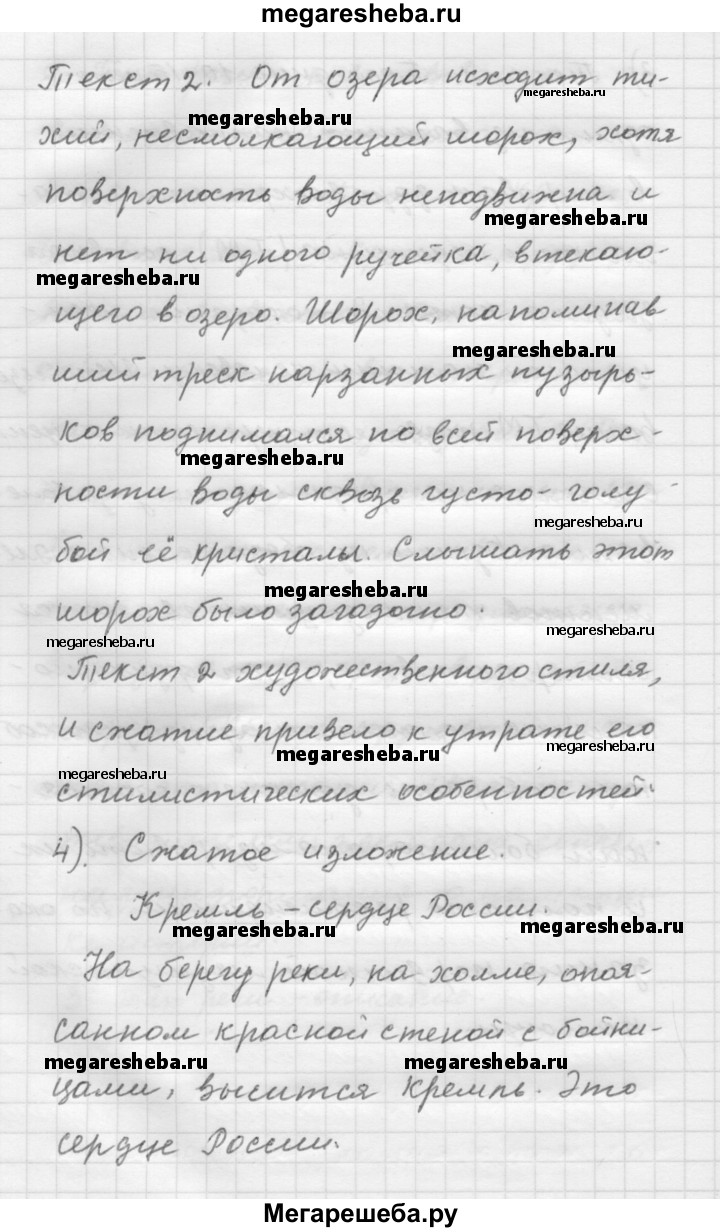 megaresheba.ru
Текст 2. От озера исходит ти-
megaresheba.ru
megaresheba.ru
хий, несмолкающий шорох, хотя
поверхность воды неподвижна и
megaresheba.ru
нет ни одного ручейка, втекаю-
megaresheba.ru
щего в озеро. Шорох, напоминав
megaresheba.ru
ший треск нарзанных пузырь-
ков поднимался по всей поверх-
megaresheba.ru
ности воды сквозь густо-голу-
megaresheba.ru
бой её кристалы. Слышать этот
megaresheba.ru
шорох было загадочно.
megaresheba.ru
megaresheba.ru
Текст 2 художественного стиля,
и сжатие привело к утрате его
megaresheba.ru
megaresheba.ru
megaresheba.ru
стилистических особенностей.
4). Сжатое изложение.
Кремль – сердце России.
megaresheba.ru
megaresheba.ru
На берегу реки, на холме, опоя-
санном красной стеной с бойни-
megaresheba.ru
megaresheba.ru
цами, высится Кремль. Это
сердце России.
Мегарешеба.ру